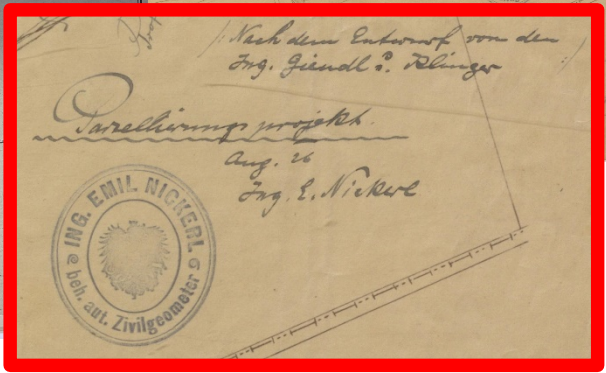 Nach dem Entwurf von den
Ing. Giendl u. Klinger
Parzellierungsprojekt.
Aug. 26
Ing. E. Nickerl
ING. EMIL NICKERL
beh. aut. Zivilgeometer